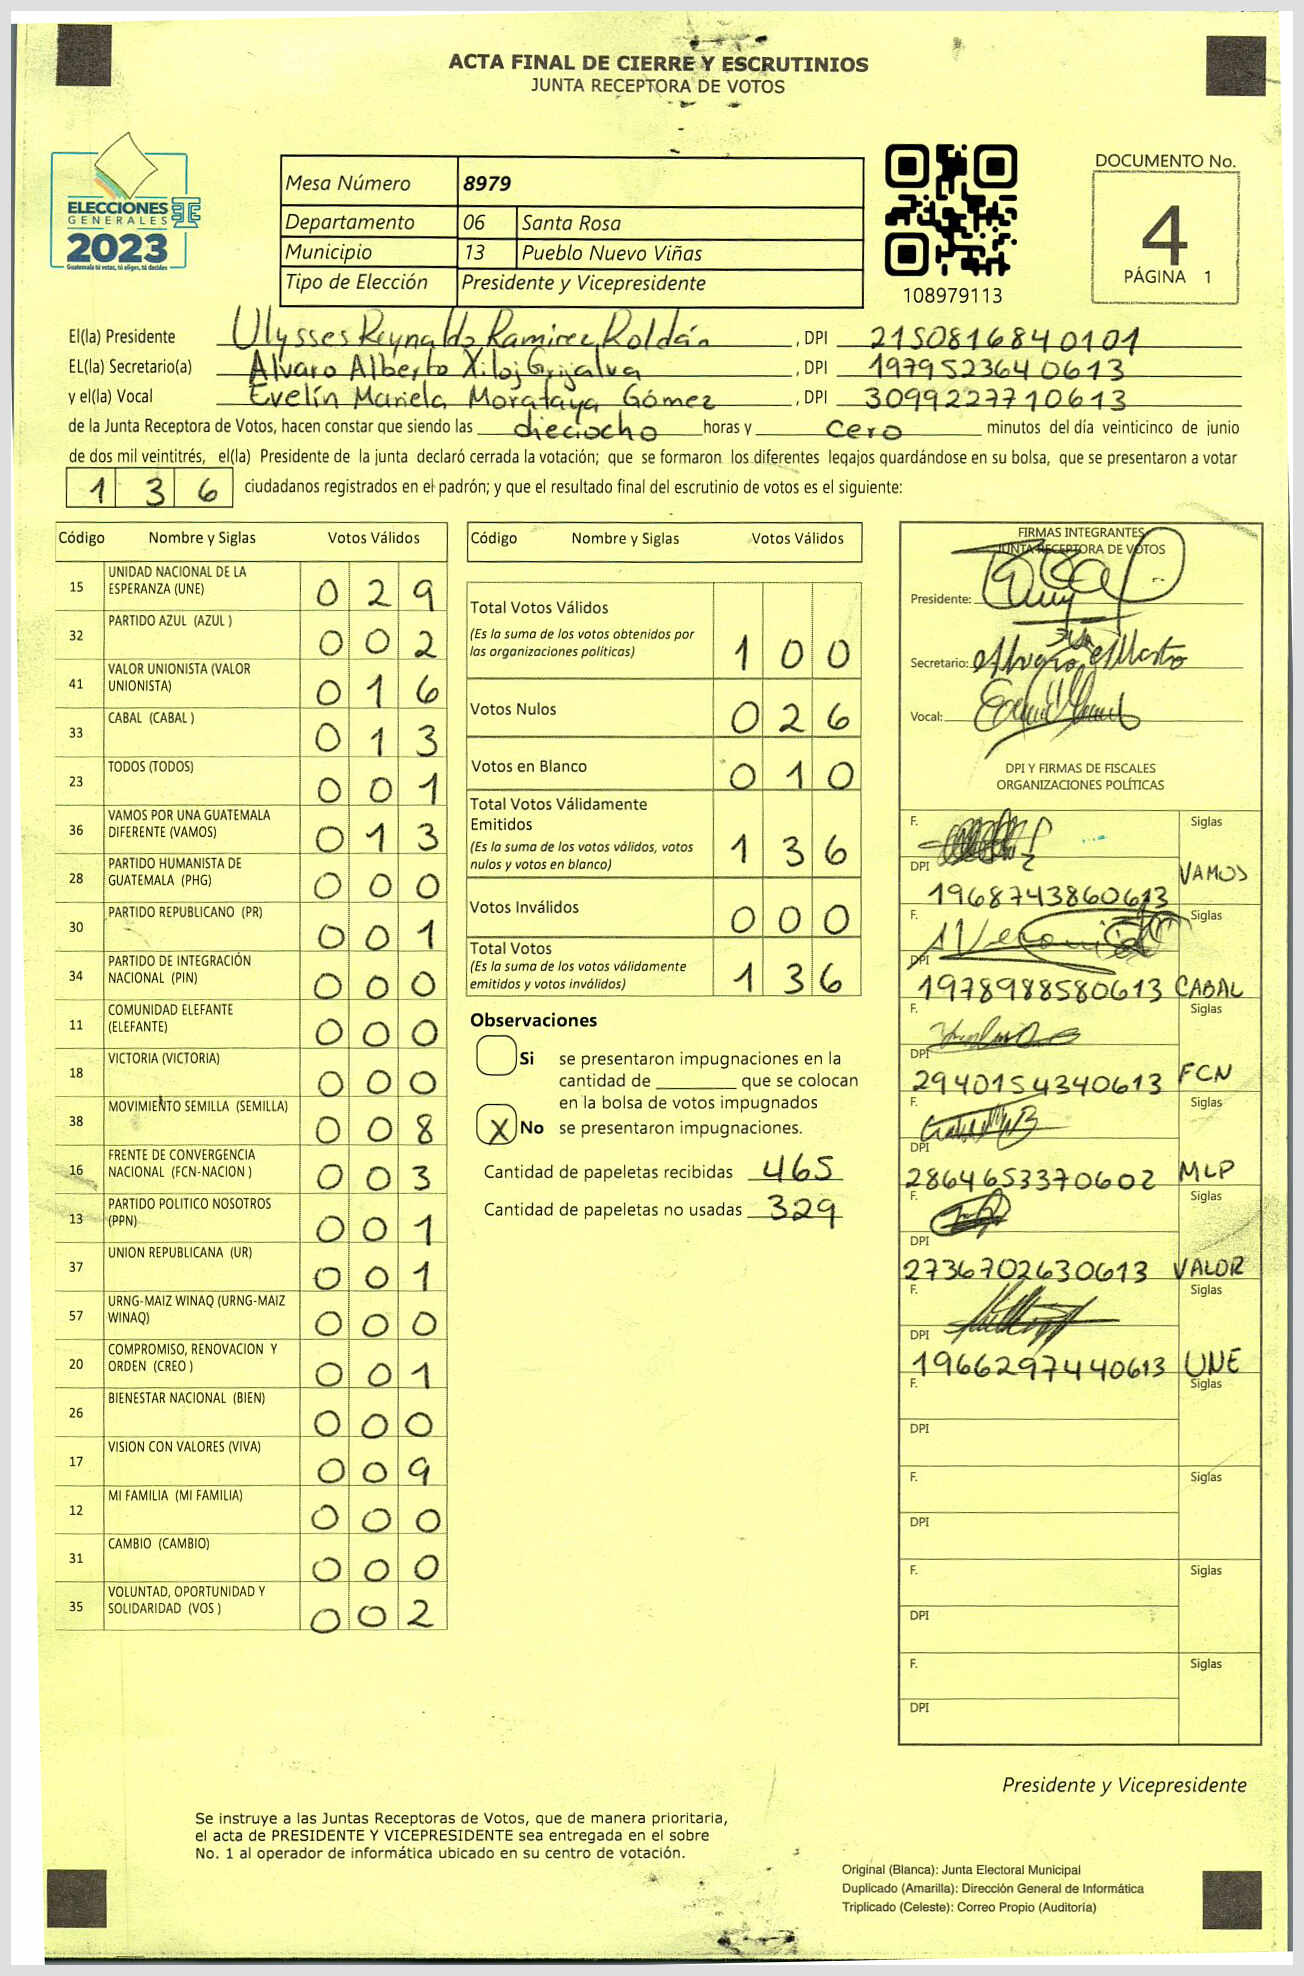 ACTA FINAL DE CIERRE Y ESCRUTINIOS
JUNTA RECEPTORA DE VOTOS
ELECCIONES
GENERALES
2023
Guatemala tú votas, tú eliges, tú decides
Mesa Número 8979
Departamento 06 Santa Rosa
Municipio 13 Pueblo Nuevo Viñas
Tipo de Elección Presidente y Vicepresidente
108979113
DOCUMENTO No.
4
PÁGINA 1
El(la) Presidente Ulysses Reynaldo Ramirez Roldán , DPI 2150816840101
EL(la) Secretario(a) Alvaro Alberto Xiloj Grijalva , DPI 1979523640613
y el(la) Vocal Evelín Mariela Morataya Gómez , DPI 3099227710613
de la Junta Receptora de Votos, hacen constar que siendo las dieciocho horas y cero minutos del día veinticinco de junio
de dos mil veintitrés, el(la) Presidente de la junta declaró cerrada la votación; que se formaron los diferentes legajos guardándose en su bolsa, que se presentaron a votar
1 3 6 ciudadanos registrados en el padrón; y que el resultado final del escrutinio de votos es el siguiente:
Código Nombre y Siglas Votos Válidos
15 UNIDAD NACIONAL DE LA ESPERANZA (UNE) 0 2 9
32 PARTIDO AZUL (AZUL ) 0 0 2
41 VALOR UNIONISTA (VALOR UNIONISTA) 0 1 6
33 CABAL (CABAL ) 0 1 3
23 TODOS (TODOS) 0 0 1
36 VAMOS POR UNA GUATEMALA DIFERENTE (VAMOS) 0 1 3
28 PARTIDO HUMANISTA DE GUATEMALA (PHG) 0 0 0
30 PARTIDO REPUBLICANO (PR) 0 0 1
34 PARTIDO DE INTEGRACIÓN NACIONAL (PIN) 0 0 0
11 COMUNIDAD ELEFANTE (ELEFANTE) 0 0 0
18 VICTORIA (VICTORIA) 0 0 0
38 MOVIMIENTO SEMILLA (SEMILLA) 0 0 8
16 FRENTE DE CONVERGENCIA NACIONAL (FCN-NACION ) 0 0 3
13 PARTIDO POLITICO NOSOTROS (PPN) 0 0 1
37 UNION REPUBLICANA (UR) 0 0 1
57 URNG-MAIZ WINAQ (URNG-MAIZ WINAQ) 0 0 0
20 COMPROMISO, RENOVACION Y ORDEN (CREO ) 0 0 1
26 BIENESTAR NACIONAL (BIEN) 0 0 0
17 VISION CON VALORES (VIVA) 0 0 9
12 MI FAMILIA (MI FAMILIA) 0 0 0
31 CAMBIO (CAMBIO) 0 0 0
35 VOLUNTAD, OPORTUNIDAD Y SOLIDARIDAD (VOS ) 0 0 2
Código Nombre y Siglas Votos Válidos
Total Votos Válidos
(Es la suma de los votos obtenidos por
las organizaciones políticas) 1 0 0
Votos Nulos 0 2 6
Votos en Blanco 0 1 0
Total Votos Válidamente
Emitidos
(Es la suma de los votos válidos, votos
nulos y votos en blanco) 1 3 6
Votos Inválidos 0 0 0
Total Votos
(Es la suma de los votos válidamente
emitidos y votos inválidos) 1 3 6
Observaciones
Si se presentaron impugnaciones en la
cantidad de ________ que se colocan
en la bolsa de votos impugnados
X No se presentaron impugnaciones.
Cantidad de papeletas recibidas 465
Cantidad de papeletas no usadas 329
FIRMAS INTEGRANTES
JUNTA RECEPTORA DE VOTOS
Presidente:
Secretario:
Vocal:
DPI Y FIRMAS DE FISCALES
ORGANIZACIONES POLÍTICAS
F. Siglas
DPI 1968743860613 VAMOS
F. Siglas
DPI 1978988580613 CABAL
F. Siglas
DPI 2940154340613 FCN
F. Siglas
DPI 2864653370602 MLP
F. Siglas
DPI 2736702630613 VALOR
F. Siglas
DPI 1966297440613 UNE
F. Siglas
DPI
F. Siglas
DPI
F. Siglas
DPI
F. Siglas
DPI
Presidente y Vicepresidente
Se instruye a las Juntas Receptoras de Votos, que de manera prioritaria,
el acta de PRESIDENTE Y VICEPRESIDENTE sea entregada en el sobre
No. 1 al operador de informática ubicado en su centro de votación.
Original (Blanca): Junta Electoral Municipal
Duplicado (Amarilla): Dirección General de Informática
Triplicado (Celeste): Correo Propio (Auditoría)